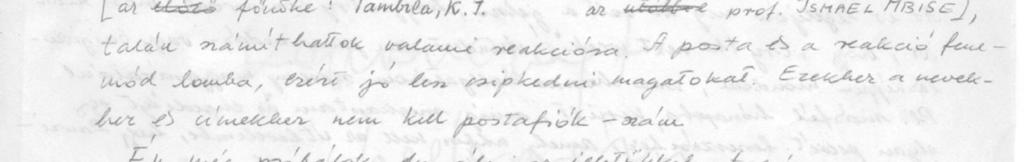 [az előző főnöke: Tambila, K. I. az utóbbi prof. ISMAEL MBISE],
talán számíthattok valami reakcióra. A posta és a reakció fene-
mód lomha, ezért jó lesz csipkedni magatokat. Ezekhez a nevek-
hez és címekhez nem kell postafiók-szám
Én még próbálok